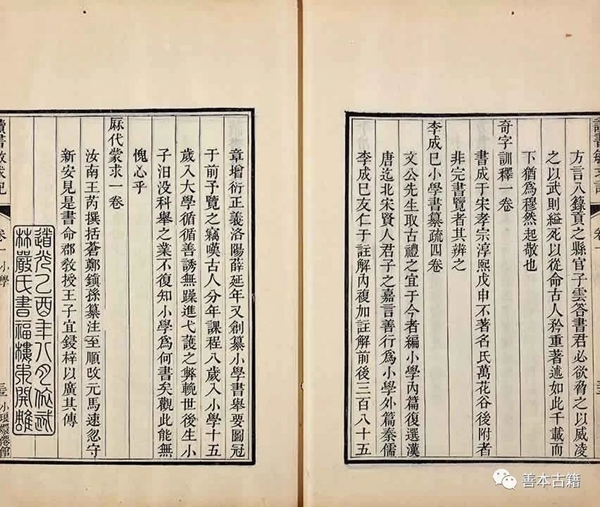 讀書敏求記
卷一
方言入籙貢之縣官子雲答書君必欲脅之以威凌
之以武則縊死以從命古人矜重著述如此千載而
下猶為穆然起敬也
奇字訓釋一卷
書成于宋孝宗淳熙戊申不著名氏萬花谷後附者
非完書覽者其辨之
李成巳小學書纂疏四卷
文公先生取古禮之宜于今者編小學內篇復選漢
唐迄北宋賢人君子之嘉言善行為小學外篇秦儒
李成巳友仁于註解內複加註解前後三百八十五
章增衍正義洛陽薛延年又創纂小學書舉要圖冠
于前予覽之竊嘆古人分年課程八歲入小學十五
歲入大學循循善誘無躁進弋謏之弊輓世後生小
子汨沒科舉之業不復知小學為何書矣觀此能無
愧心乎
厤代蒙求一卷
汝南王芮撰括蒼鄭鎮孫纂注至順改元馬速忽守
新安見是書命郡教授王子宜鋟梓以廣其傳
道光乙酉年八月仿武
林嚴氏書福樓東開雕
讀書敏求記
卷一
小學
小琅嬛僊館
善本古籍